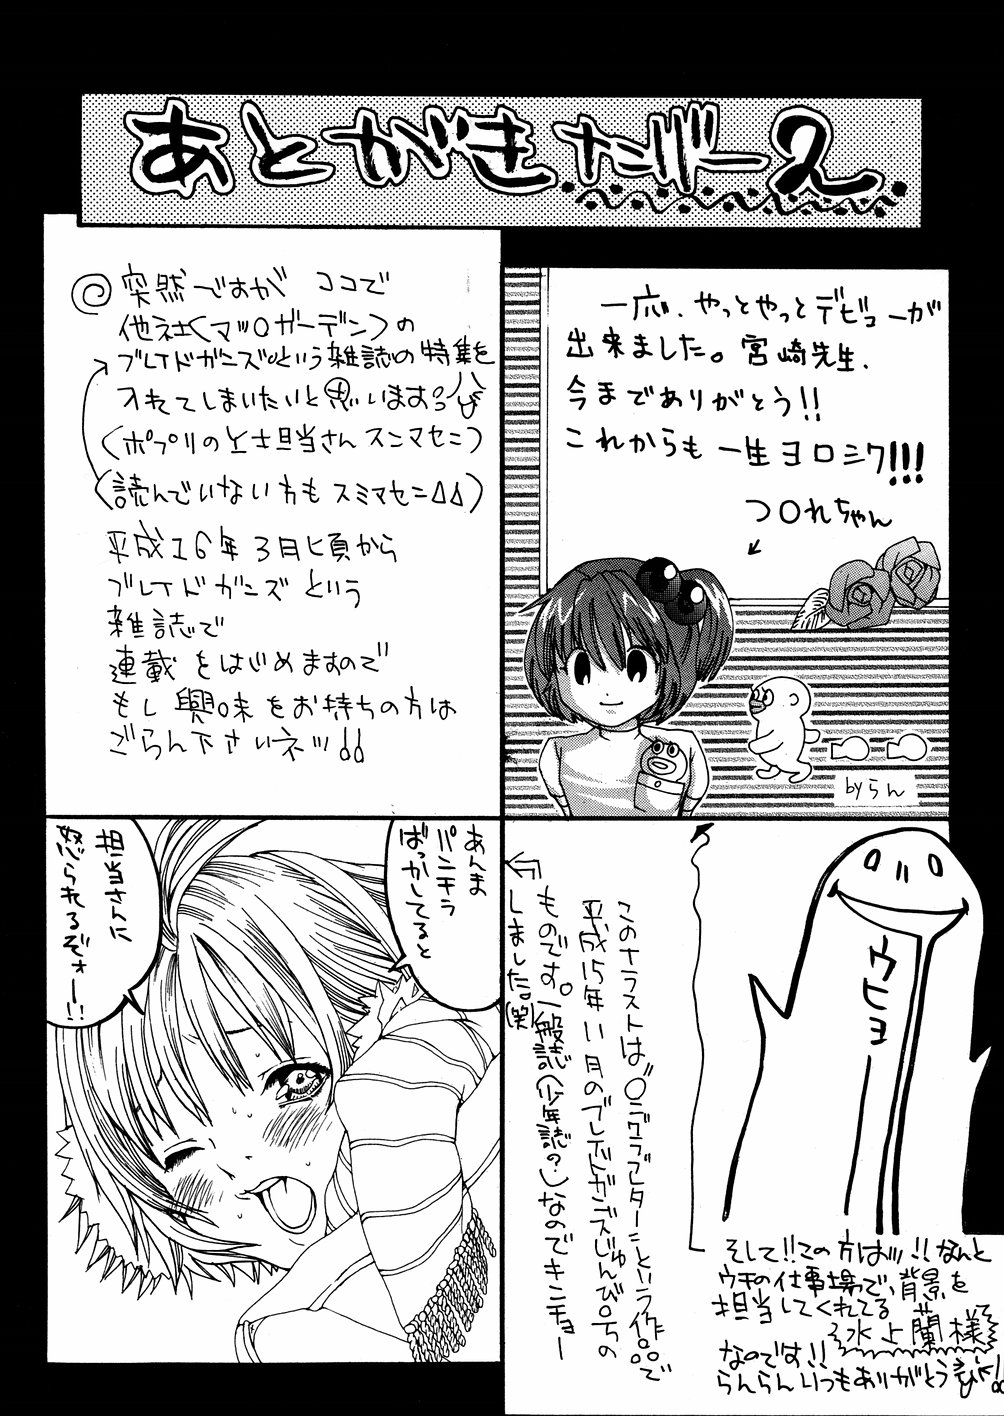 あとがきたげー2
突然ですが ココで
他社(マッ○ガーデン)の
ブレイドガニズ○という雑誌の特集を
入れてしまいたいと思います
(ポプリの士担当さんスンマセン)
(読んでいない方もスミマセン)
平成16年3月頃から
ブレイドガニズという
雑誌で
連載をはじめますので
もし興味をお持ちの方は
ごらん下さいネッ
一応、やっとやっとデビューが
出来ました。宮崎先生、
今までありがとう!!
これからも一生ヨロシク!!!
つ○れちゃん
byらん
あんま
パンチラ
ばっかしてると
担当さんに
怒られるぞォー!!
このイラストは
という作品で
平成15年11月のブレイドガニズじゅんび○ちの
ものです。一般誌(少年誌?)なのでキンチョー
しました。(笑)
ウヒョ
そして!!この方はッ!!なんと
ウチの仕事場で、背景を
担当してくれてる
水上蘭様
なのです!!
らんらんいつもありがとう